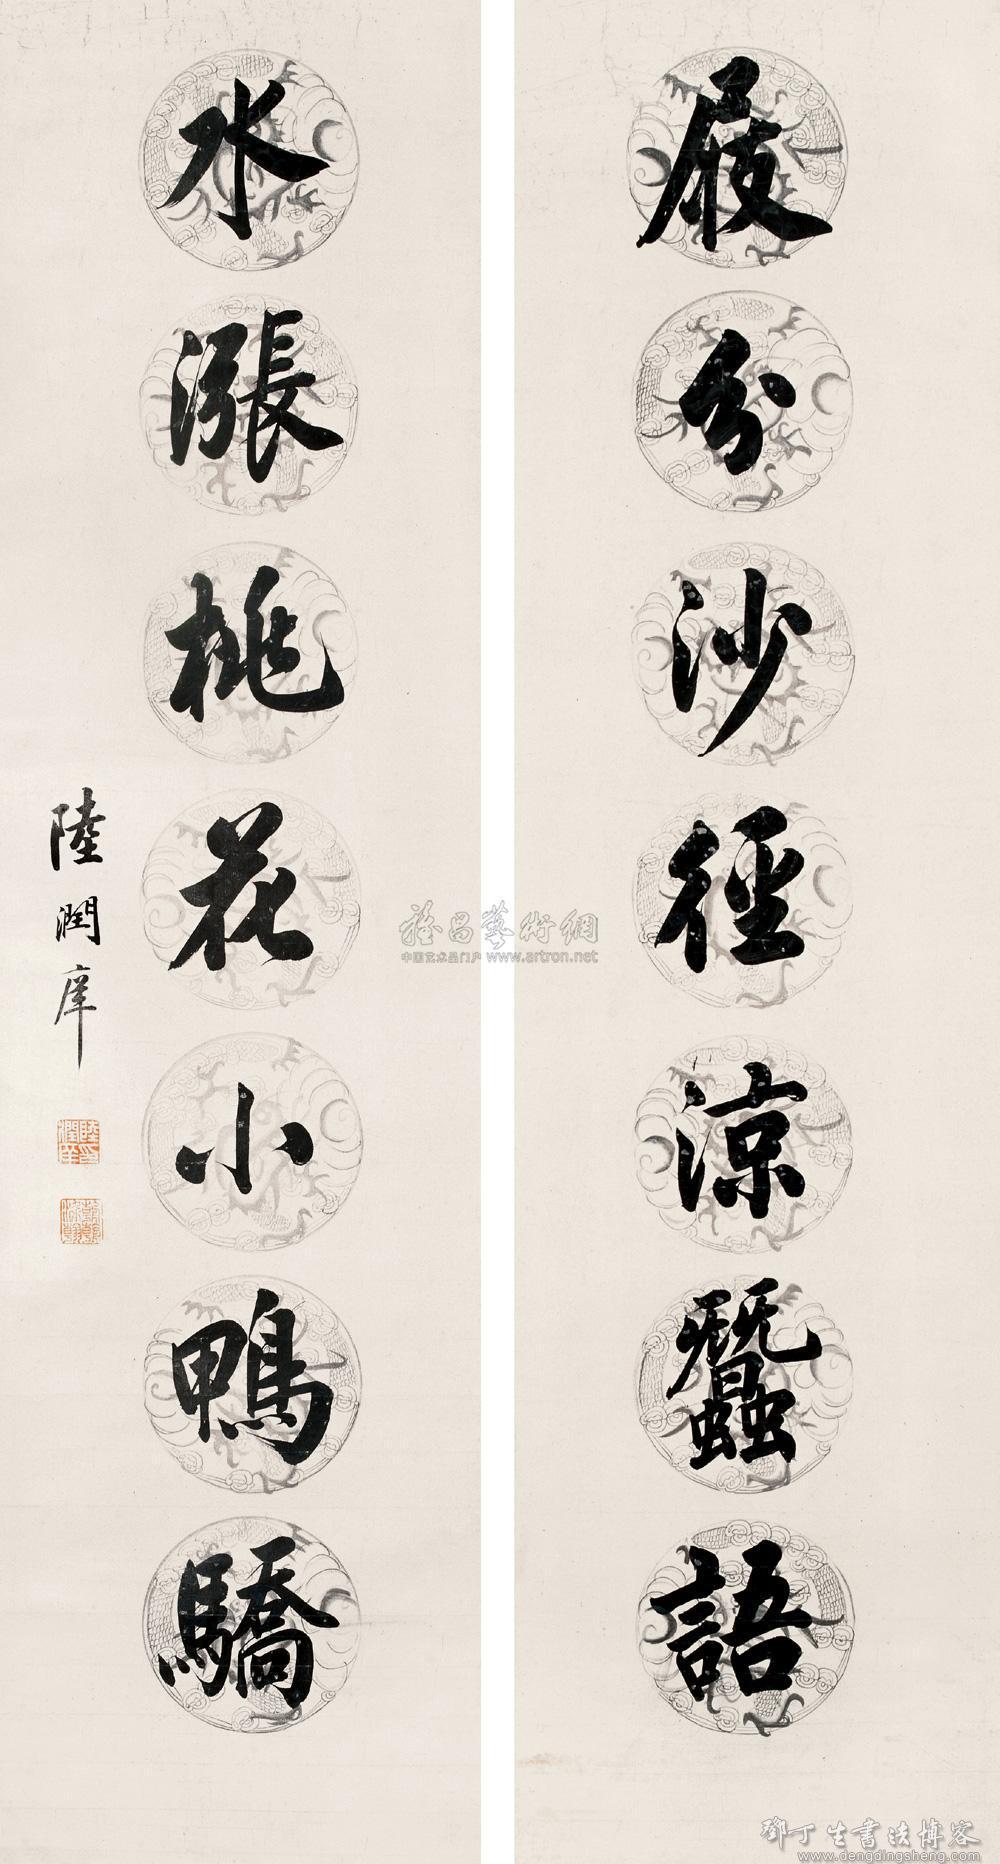 屐分沙徑涼蛩語
水漲桃花小鴨驕
陸潤庠
雅昌藝術網
中国艺术品门户 www.artron.net
鄧丁生書法博客
www.dengdingsheng.com